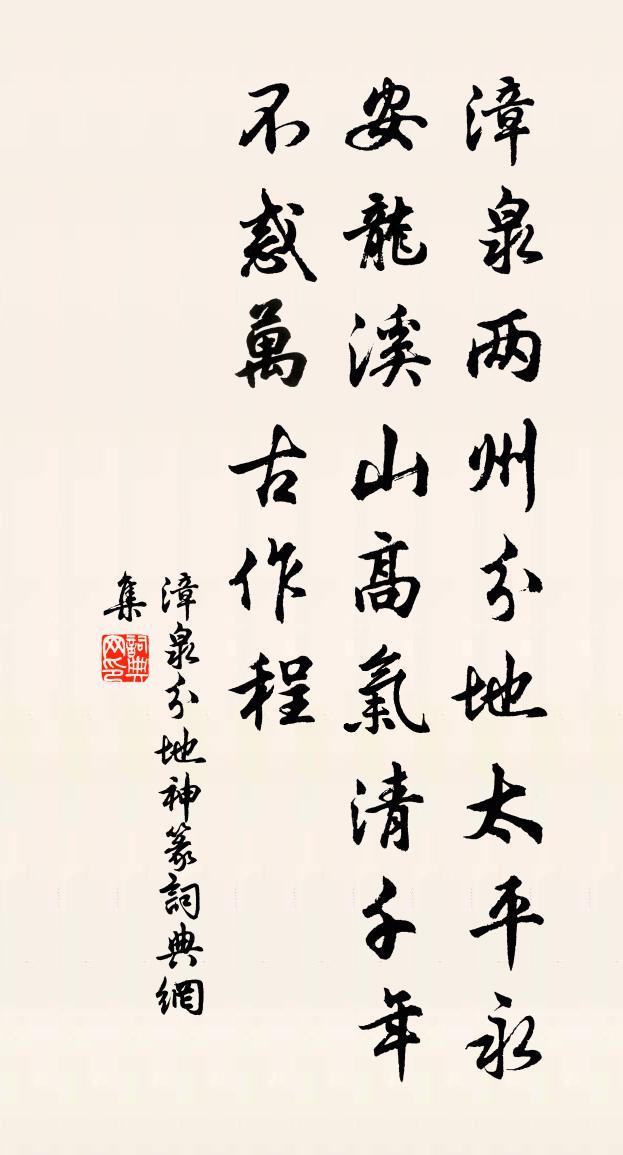 漳泉两州分地太平永
安龍溪山高氣清千年
不惑萬古作程
漳泉分地神篆詞典網
集
詞典
网印